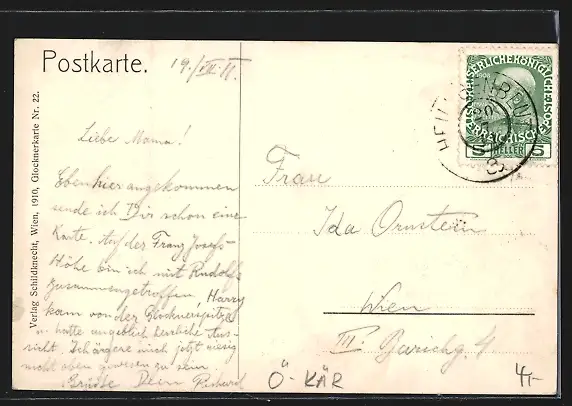 Postkarte.
19./VII. 11.
Liebe Mama!
Eben hier angekommen
sende ich Dir schon eine
Karte. Auf der Franz Josefs-
Höhe bin ich mit Rudolf
zusammengetroffen, Harry
kam von der Glocknerspitze
u. hatte angeblich herrliche Aus-
sicht. Ich ärgere mich jetzt riesig
nicht oben gewesen zu sein.
Grüße Dein Richard
Verlag Schildknecht, Wien, 1910, Glocknerkarte Nr. 22.
KAISERLICHE KÖNIGLICHE
1908
ÖSTERREICHISCHE
5 HELLER 5
HEILIGENBLUT
Frau
Ida Ornstein
Wien
III. Barichg. 4
Ö-KÄR
4,-